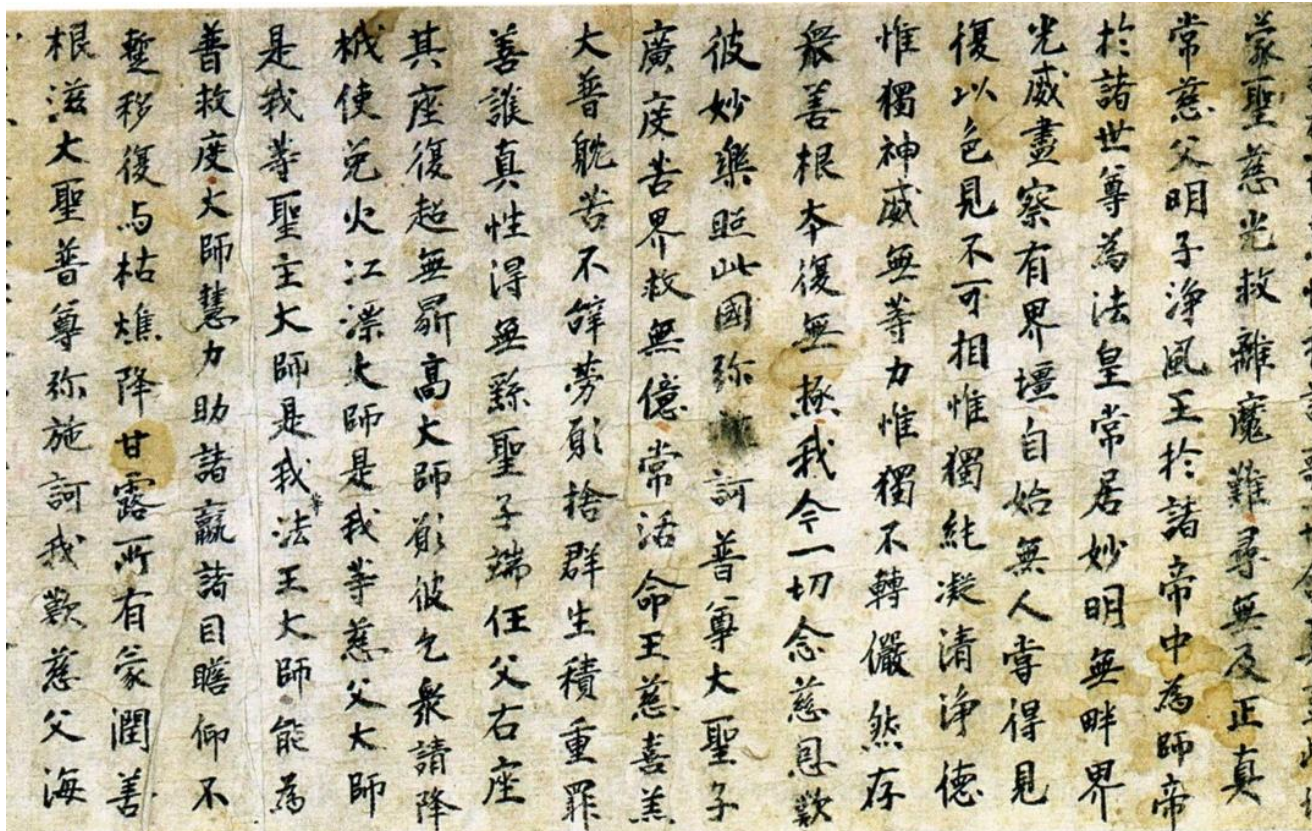 蒙聖慈光救離魔難尋無及正真
常慈父明子淨風王於諸帝中為師帝
於諸世尊為法皇常居妙明無畔界
光威盡察有界壃自始無人甞得見
復以色見不可相惟獨純凝清淨德
惟獨神威無等力惟獨不轉儼然存
衆善根本復無極我今一切念慈恩歎
彼妙樂照此國弥訶普尊大聖子
廣度苦界救無億常活命王慈喜羔
大普躭苦不辞勞願捨群生積重罪
善護真性得無繇聖子端任父右座
其座復超無鼎高大師願彼乞衆請降
栰使免火江漂大師是我等慈父大師
是我等聖主大師是我等法王大師能為
普救度大師慧力助諸羸諸目瞻仰不
蹔移復与枯燋降甘露所有蒙潤善
根滋大聖普尊弥施訶我歎慈父海